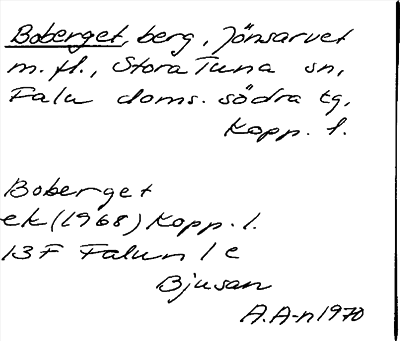 Boberget, berg, Jönsarvet
m. fl., Stora Tuna sn,
Falu doms. södra tg,
Kopp. l.
Boberget
ek (1968) Kopp. l.
13F Falun 1 c
Bjusan
A.A-n 1970